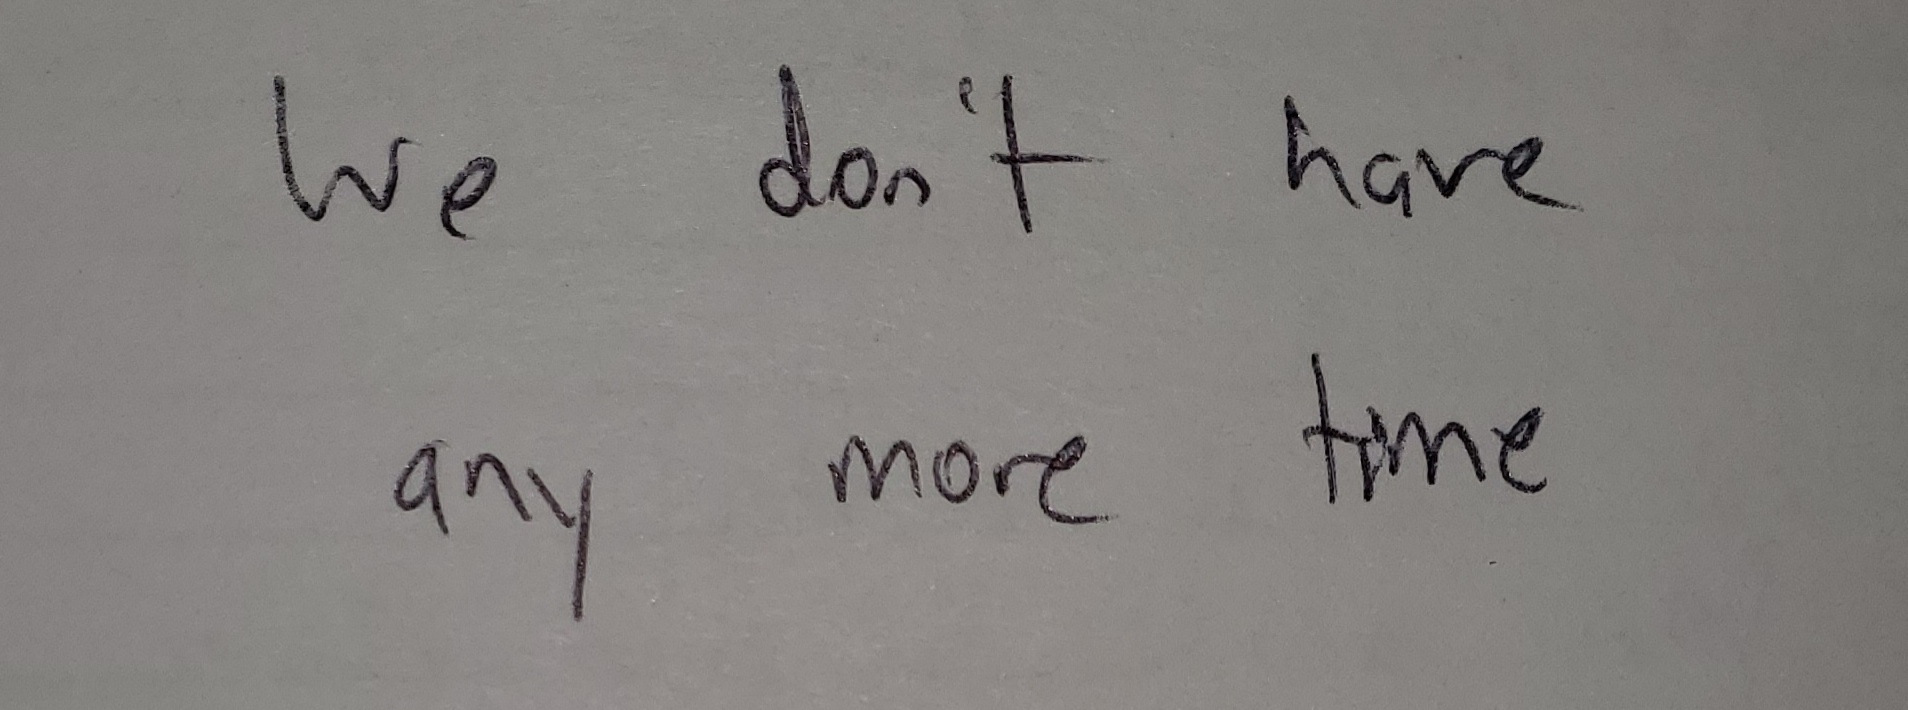 We don't have
any more time